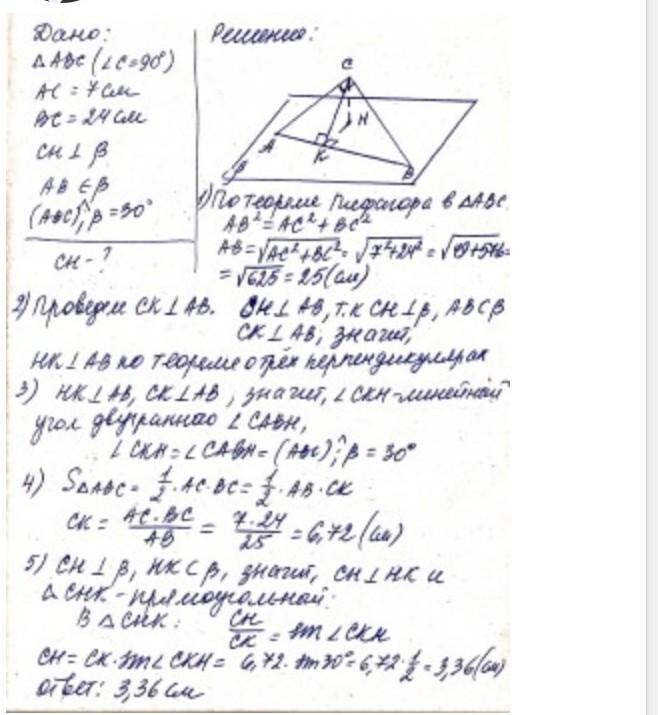 Дано:
△ABC (∠C=90°)
AC = 7 см
BC = 24 см
CH ⊥ β
AB ∈ β
(ABC)^β = 30°
CH - ?
Решение:
C
H
A
K
B
β
1) По теореме Пифагора в △ABC
AB² = AC² + BC²
AB = √AC²+BC² = √7²+24² = √49+576 =
= √625 = 25 (см)
2) Проведем CK ⊥ AB. CH ⊥ AB, т.к CH ⊥ β, AB ⊂ β
CK ⊥ AB, значит,
HK ⊥ AB по теореме о трёх перпендикулярах
3) HK ⊥ AB, CK ⊥ AB, значит, ∠CKH - линейный
угол двугранного ∠CABH,
∠CKH = ∠CABH = (ABC)^β = 30°
4) S△ABC = 1/2 · AC · BC = 1/2 · AB · CK
CK = AC · BC / AB = 7 · 24 / 25 = 6,72 (см)
5) CH ⊥ β, HK ⊂ β, значит, CH ⊥ HK и
△CHK - прямоугольной.
В △CHK: CH / CK = sin ∠CKH
CH = CK · sin ∠CKH = 6,72 · sin 30° = 6,72 · 1/2 = 3,36 (см)
Ответ: 3,36 см